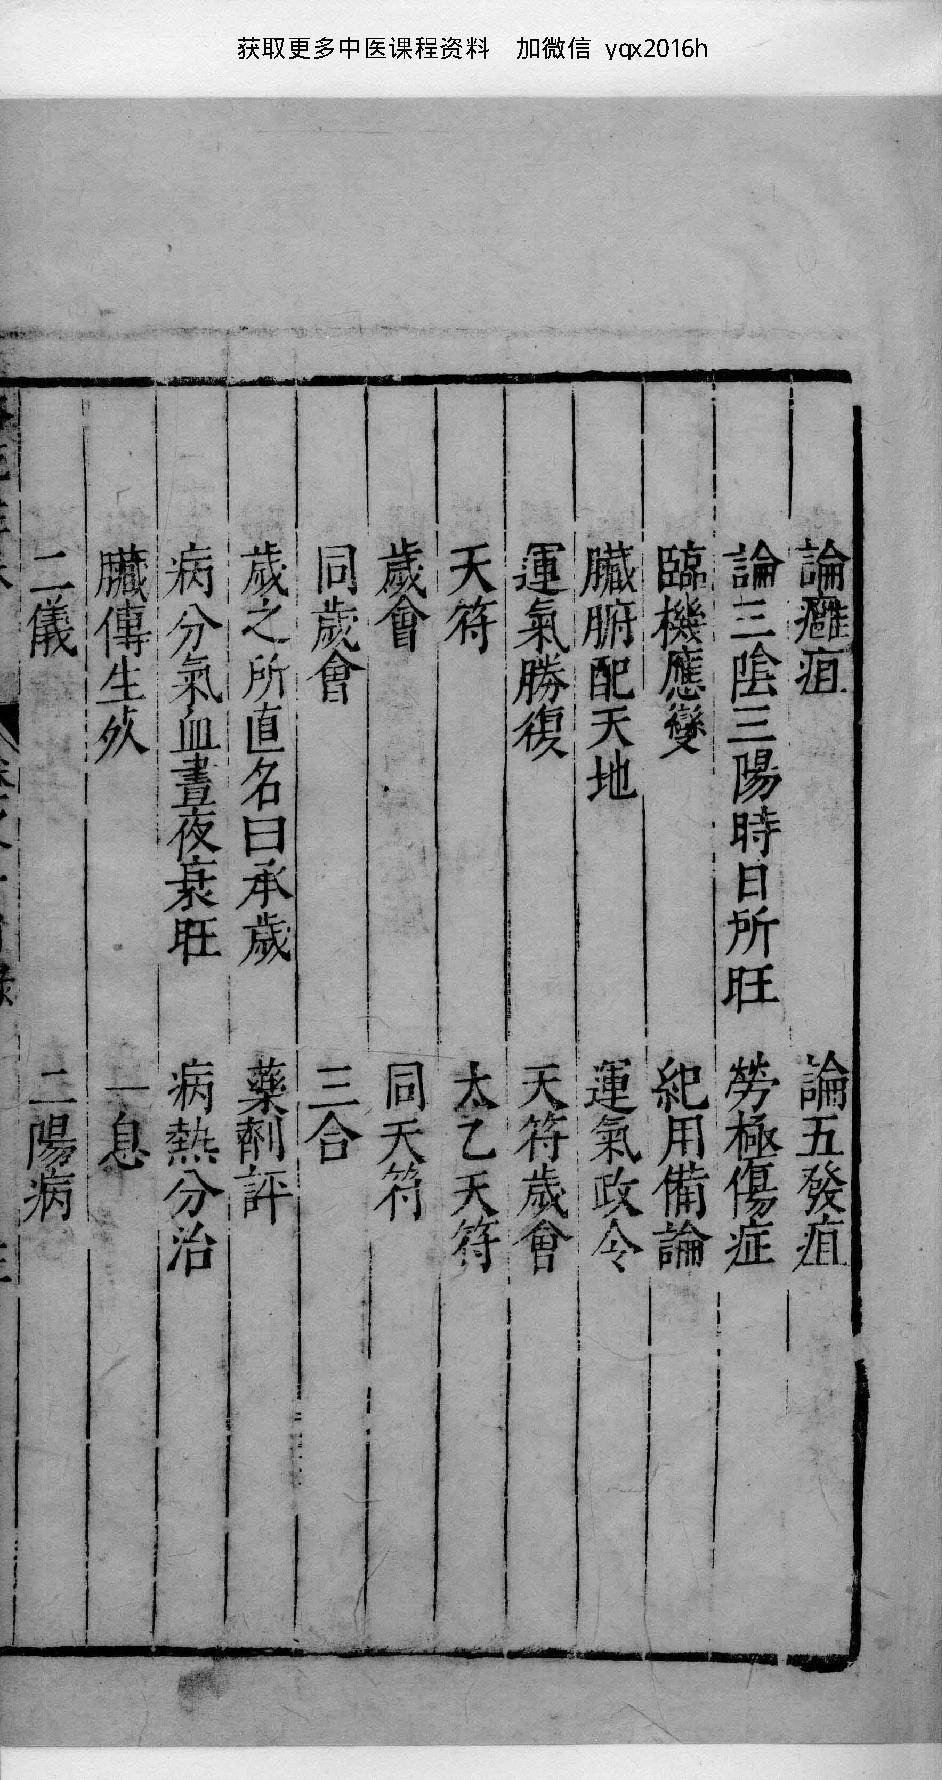 获取更多中医课程资料 加微信 yqx2016h
論癰疽 論五發疽
論三陰三陽時日所旺 勞極傷症
臨機應變 紀用備論
臟腑配天地 運氣政令
運氣勝復 天符歲會
天符 太乙天符
歲會 同天符
同歲會 三合
歲之所直名曰承歲 藥劑評
病分氣血晝夜衰旺 病熱分治
臟傳生死 一息
二儀 二陽病